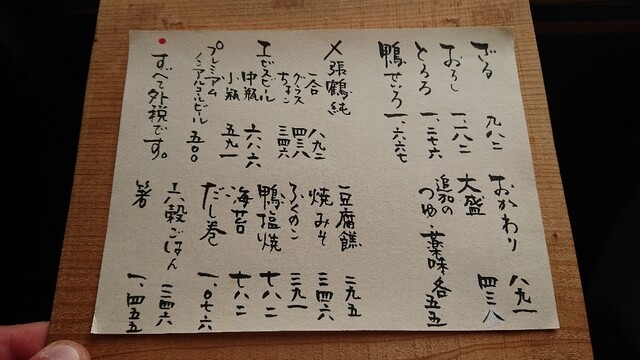 ざる 九八二
おろし 一、一八二
とろろ 一、二七六
鴨せいろ 一、六六七
おかわり 八九一
大盛 四三八
追加のつゆ・薬味各五五
〆張鶴純
一合 八九二
グラス 四三八
ちょこ 三四六
ヱビスビール
中瓶 六八六
小瓶 五九一
プレミアム
ノンアルコールビール 五〇〇
すべて外税です。
豆腐餻 二九五
焼みそ 三四六
ふくのこ 三九一
鴨塩焼 七八二
海苔 七八二
だし巻 一、〇七六
六穀ごはん 三四六
箸 一、四五五